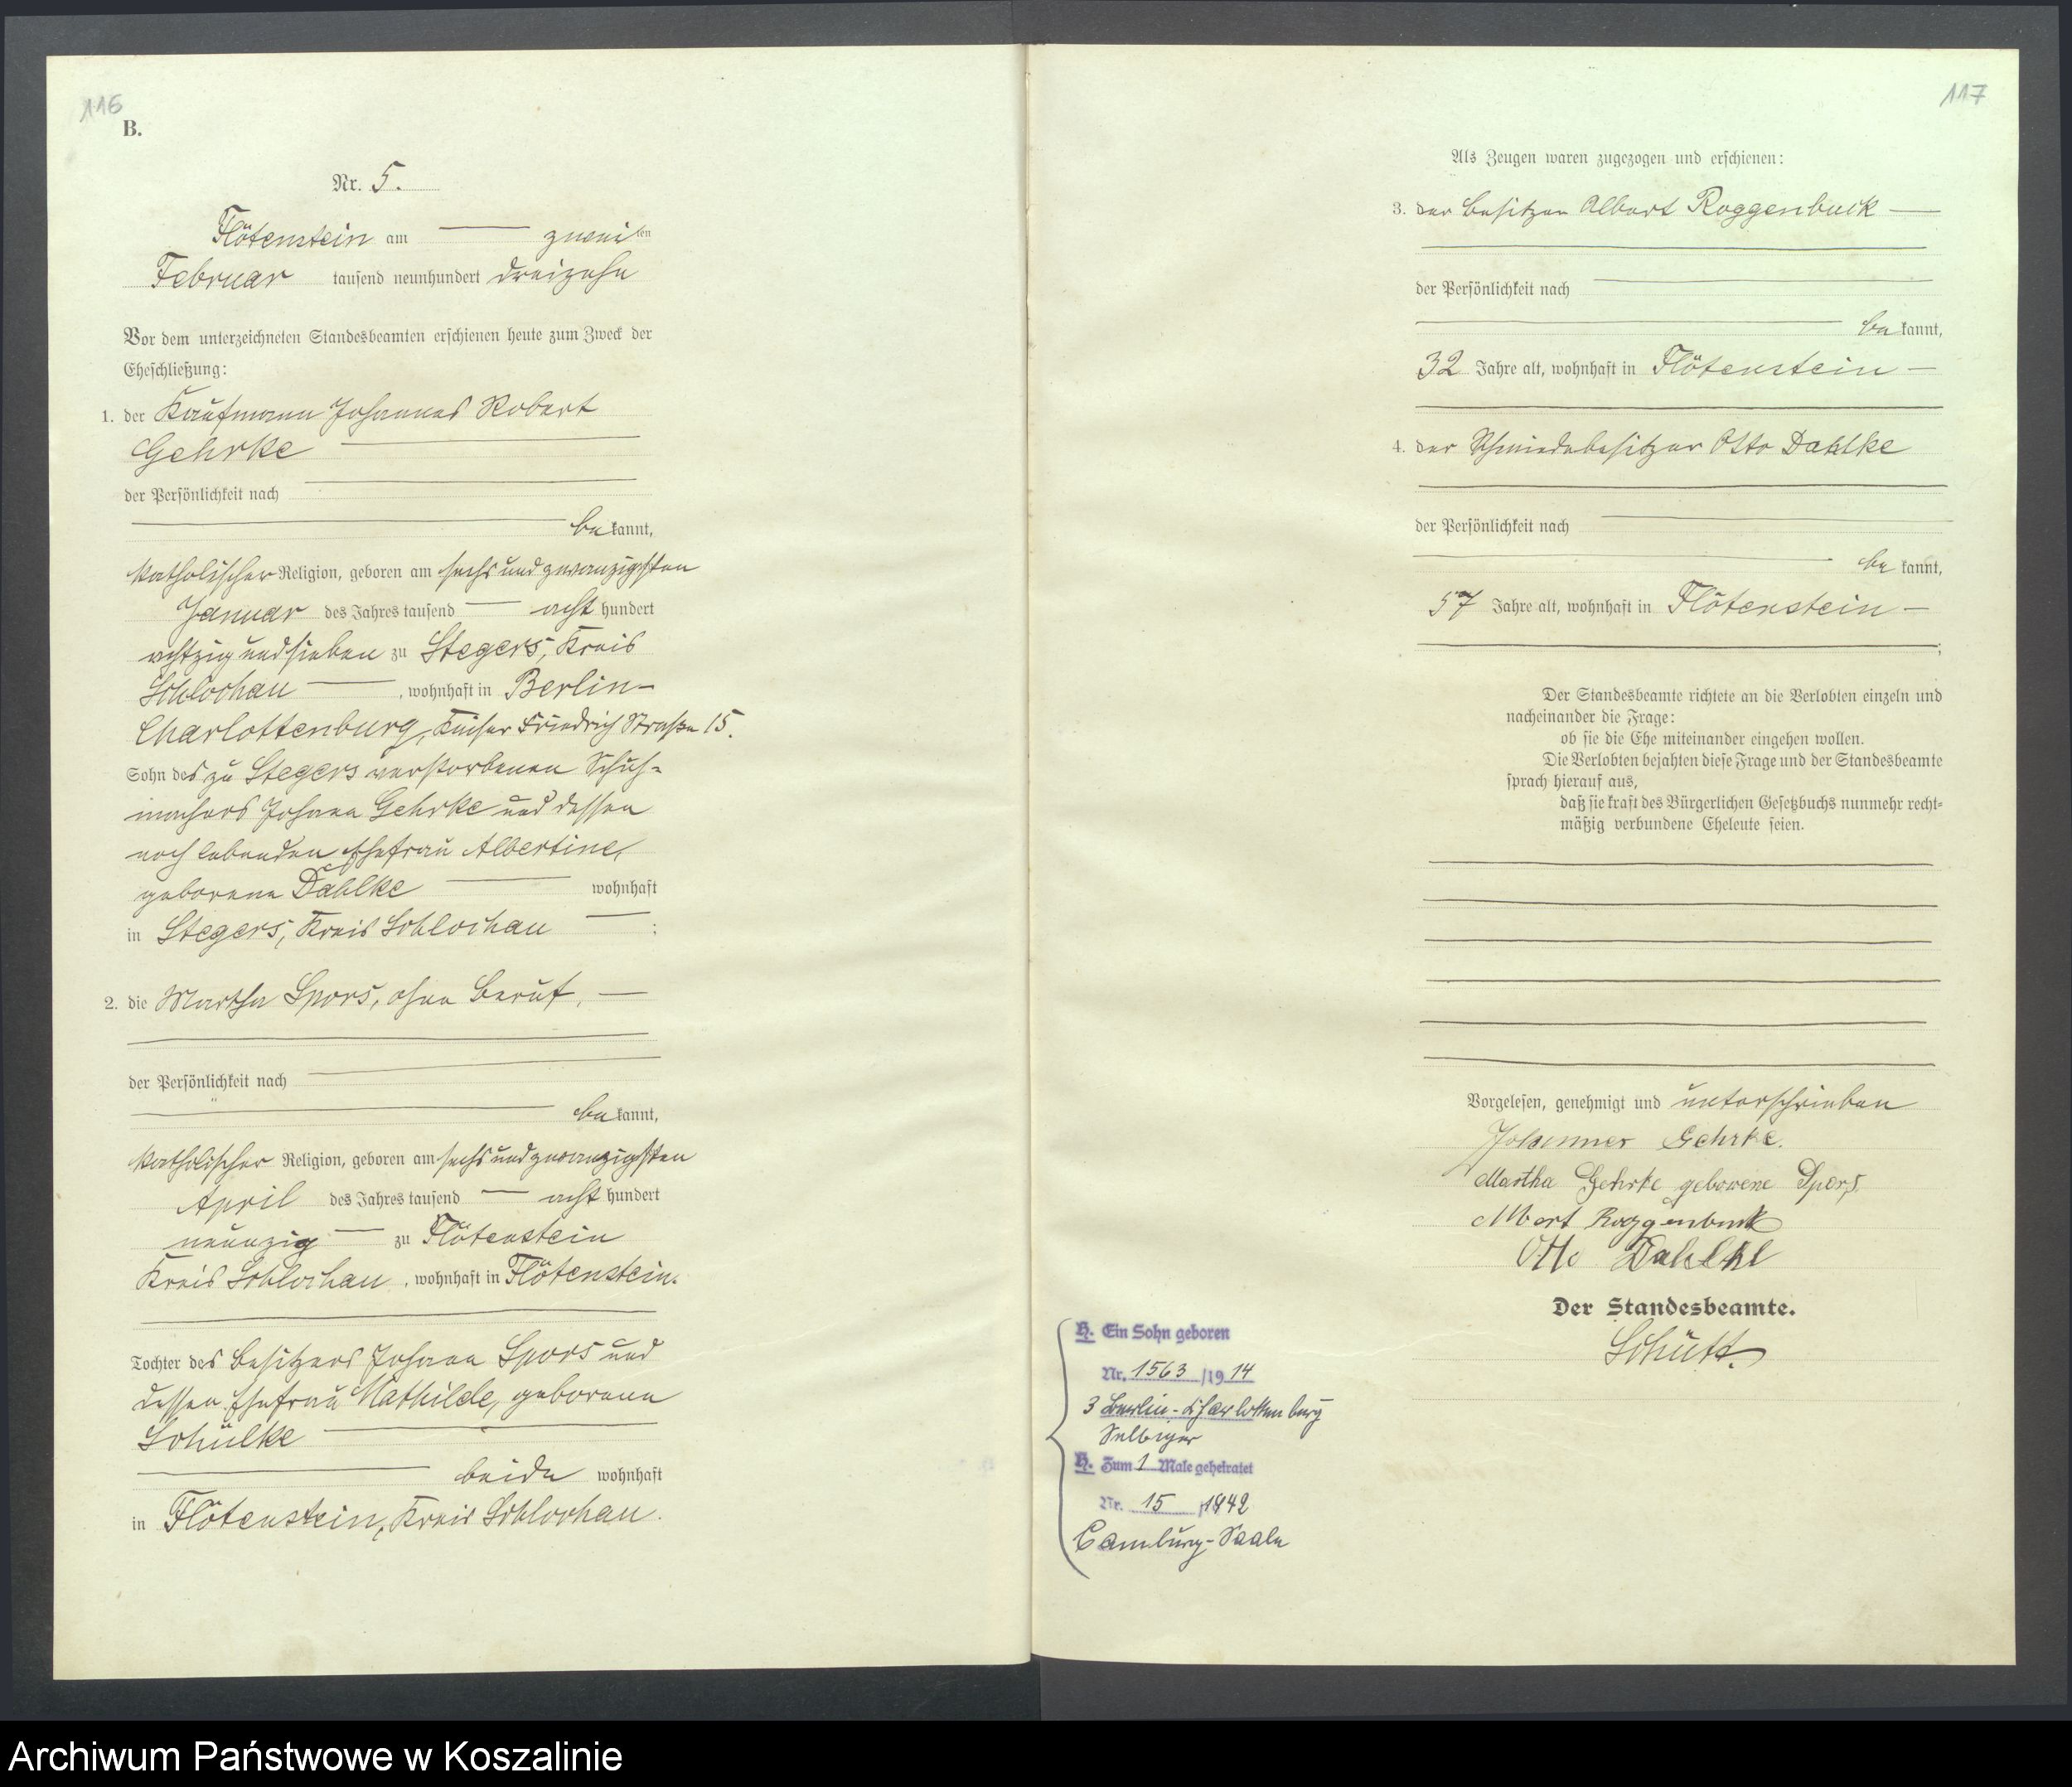 116
B.
Nr. 5.
Flötenstein am zweiten
Februar tausend neunhundert dreizehn
Vor dem unterzeichneten Standesbeamten erschienen heute zum Zweck der
Eheschließung:
1. der Kaufmann Johannes Robert
Gehrke
der Persönlichkeit nach
bekannt,
katholischer Religion, geboren am sechsundzwanzigsten
Januar des Jahres tausend acht hundert
achtzig und sieben zu Stegers, Kreis
Schlochau, wohnhaft in Berlin-
Charlottenburg, Kaiser Friedrich Straße 15.
Sohn des zu Stegers verstorbenen Schuh-
machers Johann Gehrke und dessen
noch lebenden Ehefrau Albertine,
geborene Dahlke wohnhaft
in Stegers, Kreis Schlochau ;
2. die Martha Spors, ohne Beruf,
der Persönlichkeit nach
bekannt,
katholischer Religion, geboren am sechsundzwanzigsten
April des Jahres tausend acht hundert
neunzig zu Flötenstein
Kreis Schlochau, wohnhaft in Flötenstein.
Tochter des Besitzers Johann Spors und
dessen Ehefrau Mathilde, geborene
Schülke
beide wohnhaft
in Flötenstein, Kreis Schlochau.
117
Als Zeugen waren zugezogen und erschienen:
3. der Besitzer Albert Roggenbuck
der Persönlichkeit nach
bekannt,
32 Jahre alt, wohnhaft in Flötenstein
4. der Schmiedebesitzer Otto Dahlke
der Persönlichkeit nach
bekannt,
57 Jahre alt, wohnhaft in Flötenstein
;
Der Standesbeamte richtete an die Verlobten einzeln und
nacheinander die Frage:
ob sie die Ehe miteinander eingehen wollen.
Die Verlobten bejahten diese Frage und der Standesbeamte
sprach hierauf aus,
daß sie kraft des Bürgerlichen Gesetzbuchs nunmehr recht-
mäßig verbundene Eheleute seien.
Vorgelesen, genehmigt und unterschrieben
Johannes Gehrke.
Martha Gehrke geborene Spors
Albert Roggenbuck
Otto Dahlke
Der Standesbeamte.
Schütt.
H. Ein Sohn geboren
Nr. 1563 /1914
3 Berlin-Charlottenburg
Selbiger
H. Zum 1 Male geheiratet
Nr. 15 /1942
Camburg-Saale
Archiwum Państwowe w Koszalinie